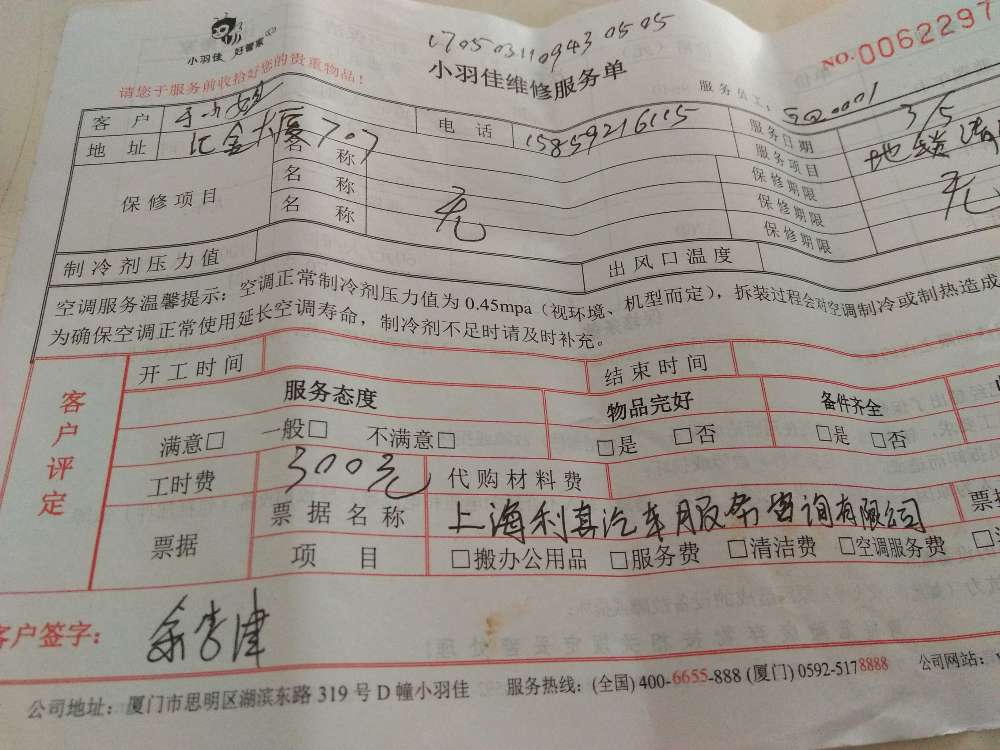 小羽佳 好管家
17050311094305 05
NO.0062297
小羽佳维修服务单
请您于服务前收拾好您的贵重物品!
服务员工:
客户 电话 15859216115 服务日期 3/5
地址 汇金大厦707 服务项目 地毯清
保修项目 名称 保修期限
名称 无 保修期限 无
名称 保修期限
制冷剂压力值 出风口温度
空调服务温馨提示:空调正常制冷剂压力值为0.45mpa(视环境、机型而定),拆装过程会对空调制冷或制热造成
为确保空调正常使用延长空调寿命,制冷剂不足时请及时补充。
客户评定
开工时间 结束时间
服务态度 物品完好 备件齐全
满意□ 一般□ 不满意□ □是 □否 □是 □否
工时费 300元 代购材料费
票据 票据名称 上海利真汽车服务咨询有限公司 票据
项目 □搬办公用品 □服务费 □清洁费 □空调服务费
客户签字:
公司地址:厦门市思明区湖滨东路319号D幢小羽佳 服务热线:(全国)400-6655-888 (厦门)0592-5178888 公司网站: